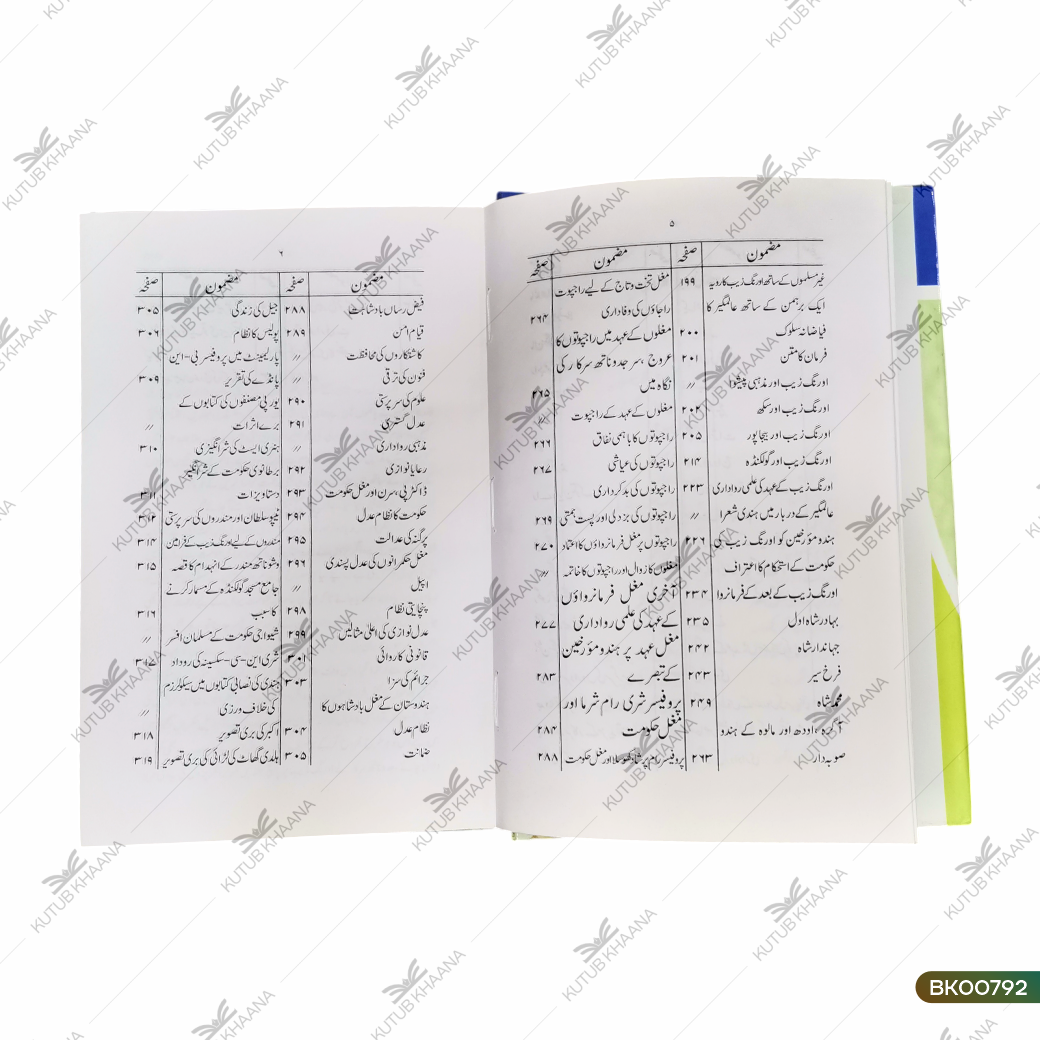 ۵
مضمون صفحہ
غیر مسلموں کے ساتھ اورنگ زیب کا رویہ ۱۹۹
ایک برہمن کے ساتھ عالمگیر کا
فیاضانہ سلوک ۲۰۰
فرمان کا متن ۲۰۱
اورنگ زیب اور مذہبی پیشوا 〃
اورنگ زیب اور سکھ ۲۰۲
اورنگ زیب اور بیجاپور ۲۰۵
اورنگ زیب اور گولکنڈہ ۲۱۴
اورنگ زیب کے عہد کی علمی رواداری ۲۲۳
عالمگیر کے دربار میں ہندی شعرا 〃
ہندو مؤرخین کو اورنگ زیب کی ۲۲۶
حکومت کے استحکام کا اعتراف
اورنگ زیب کے بعد کے فرمانروا ۲۳۴
بہادر شاہ اول ۲۳۵
جہاندار شاہ ۲۴۲
فرخ سیر ۲۴۳
محمد شاہ ۲۴۹
آگرہ، اودھ اور مالوہ کے ہندو
صوبہ دار ۲۶۳
مضمون صفحہ
مغل تخت و تاج کے لیے راجپوت
راجاؤں کی وفاداری ۲۶۴
مغلوں کے عہد میں راجپوتوں کا
عروج، سر جدو ناتھ سرکار کی
نگاہ میں ۲۶۵
مغلوں کے عہد کے راجپوت 〃
راجپوتوں کا باہمی نفاق ۲۶۶
راجپوتوں کی عیاشی ۲۶۷
راجپوتوں کی بدکرداری
راجپوتوں کی بزدلی اور پست ہمتی ۲۶۹
راجپوتوں پر مغل فرمانرواؤں کا اعتماد ۲۷۰
مغلوں کا زوال اور راجپوتوں کا خاتمہ 〃
آخری مغل فرمانرواؤں
کے عہد کی علمی رواداری ۲۷۷
مغل عہد پر ہندو مؤرخین
کے تبصرے ۲۸۳
پروفیسر شری رام شرما اور
مغل حکومت ۲۸۴
پروفیسر رام پرشاد کھوسلا اور مغل حکومت ۲۸۸
۶
مضمون صفحہ
فیض رساں بادشاہت ۲۸۸
قیام امن ۲۸۹
کاشتکاروں کی محافظت 〃
فنون کی ترقی 〃
علوم کی سرپرستی ۲۹۰
عدل گستری ۲۹۱
مذہبی رواداری 〃
رعایا نوازی ۲۹۲
ڈاکٹر پی سرن اور مغل حکومت ۲۹۳
حکومت کا نظام عدل ۲۹۴
پرگنہ کی عدالت ۲۹۵
مغل حکمرانوں کی عدل پسندی ۲۹۶
اپیل 〃
پنچایتی نظام ۲۹۸
عدل نوازی کی اعلیٰ مثالیں ۲۹۹
قانونی کاروائی ۳۰۱
جرائم کی سزا ۳۰۳
ہندوستان کے مغل بادشاہوں کا
نظام عدل ۳۰۴
ضمانت ۳۰۵
مضمون صفحہ
جیل کی زندگی ۳۰۵
پولیس کا نظام ۳۰۶
پارلیمینٹ میں پروفیسر بی-این
پانڈے کی تقریر ۳۰۹
یورپی مصنفوں کی کتابوں کے
برے اثرات 〃
ہنری ایلٹ کی شر انگیزی ۳۱۰
برطانوی حکومت کے شر انگیز
دستاویزات ۳۱۱
ٹیپو سلطان اور مندروں کی سرپرستی ۳۱۲
مندروں کے لیے اورنگ زیب کے فرامین ۳۱۴
وشوناتھ مندر کے انہدام کا قصہ ۳۱۵
جامع مسجد گولکنڈہ کے مسمار کرنے
کا سبب ۳۱۶
شیواجی حکومت کے مسلمان افسر 〃
شری این-سی-سکسینہ کی روداد ۳۱۷
ہندی کی نصابی کتابوں میں سیکولرزم
کی خلاف ورزی 〃
اکبر کی بری تصویر ۳۱۸
ہلدی گھاٹ کی لڑائی کی بری تصویر ۳۱۹
KUTUB KHAANA
BK00792